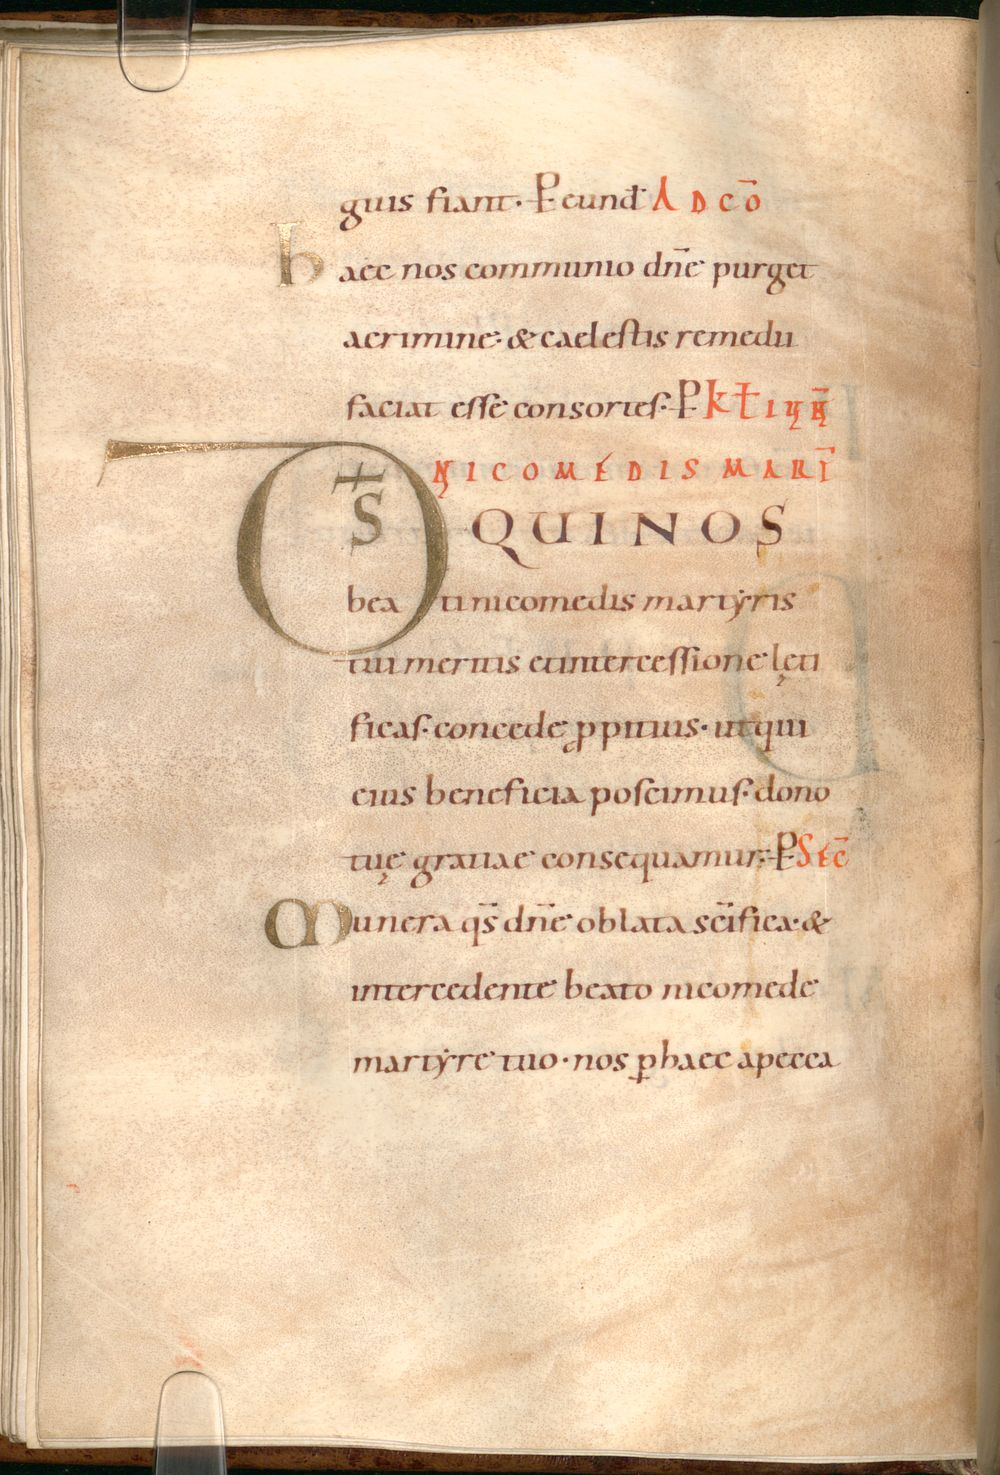 guis fiant· P eund̄ AD CŌ
haec nos communio dn̄e purget
acrimine· & caelestis remedii
faciat esse consortes· P kƚ IUN̄
NICOMEDIS MARṪ
D̄S QUI NOS
beati nicomedis martẏris
tui meritis etintercessione lęti
ficas· concede ꝓpitius· utqui
eius beneficia poscimus· dono
tuę gratiae consequamur· P SEC̄
Munera qs̄ dn̄e oblata sc̄ifica· &
intercedente beato nicomede
martẏre tuo· nos ꝑhaec apecca